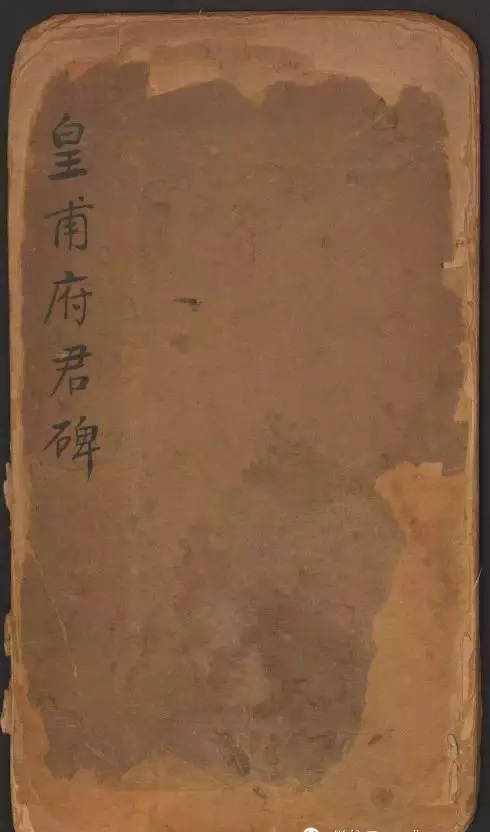 皇甫府君碑